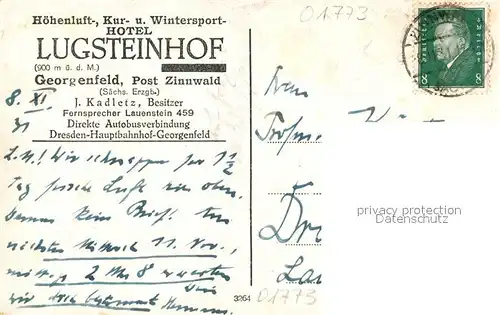 Höhenluft-, Kur- u. Wintersport-
HOTEL
LUGSTEINHOF
(900 m ü. d. M.)
Georgenfeld, Post Zinnwald
(Sächs. Erzgb.)
J. Kadletz, Besitzer
Fernsprecher Lauenstein 459
Direkte Autobusverbindung
Dresden-Hauptbahnhof-Georgenfeld
8. XI.
31
L. M.! Wir schnappen für 1 1/2
Tag frische Luft hier oben.
Darum kein Brief!
nächsten Mittwoch 11. Nov.,
mitt. 2 Uhr 8 erwarten
wir doch bestimmt
01773
8
8
Frau
Dr
privacy protection
Datenschutz
3264
01773